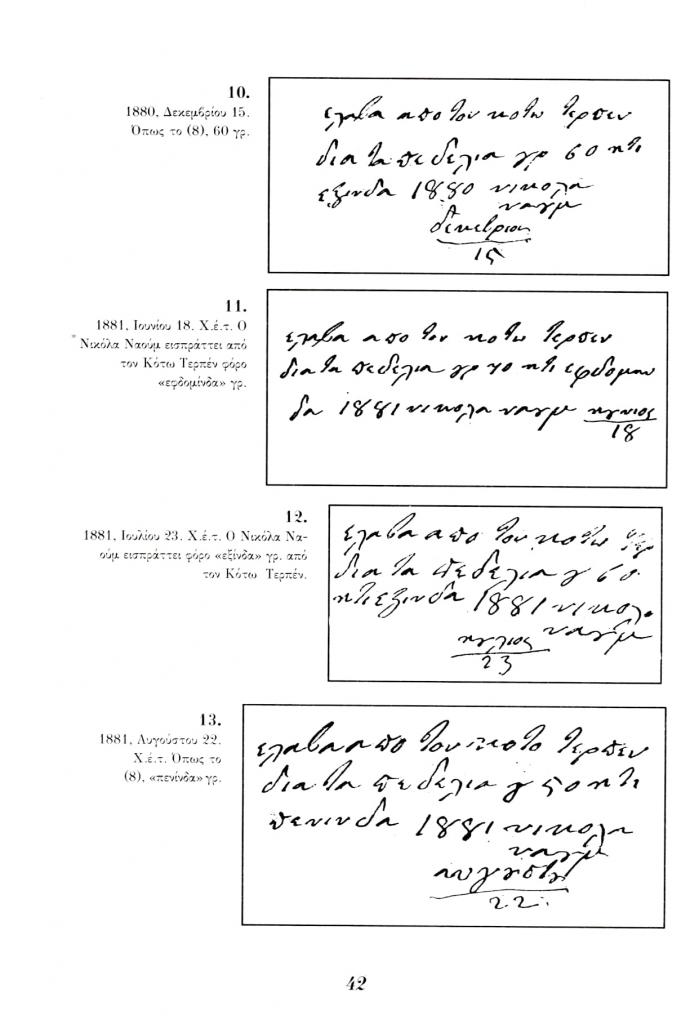 10.
1880, Δεκεμβρίου 15.
Όπως το (8), 60 γρ.
ελαβα απο τον κοτω τερπεν
δια τα πεδελια γρ 60 ητι
εξινδα 1880 νικολα
ναȣμ
δεκεβριος
15
11.
1881, Ιουνίου 18. Χ.έ.τ. Ο
Νικόλα Ναούμ εισπράττει από
τον Κότω Τερπέν φόρο
«εφδομίνδα» γρ.
ελαβα απο τον κοτω τερπεν
δια τα πεδελια γρ 70 ητι εφδομην
δα 1881 νικολα ναȣμ ηȣνιος
18
12.
1881, Ιουλίου 23. Χ.έ.τ. Ο Νικόλα Να-
ούμ εισπράττει φόρο «εξίνδα» γρ. από
τον Κότω Τερπέν.
ελαβα απο τον κοτω τερ
δια τα πεδελια γ 60
ητι εξινδα 1881 νικολα
ναȣμ
ηȣλιος
23
13.
1881, Αυγούστου 22.
Χ.έ.τ. Όπως το
(8), «πενίνδα» γρ.
ελαβα απο τον κοτο τερπεν
δια τα πεδελια γ 50 ητι
πενινδα 1881 νικολα
ναȣμ
αυγȣστȣ
22
42